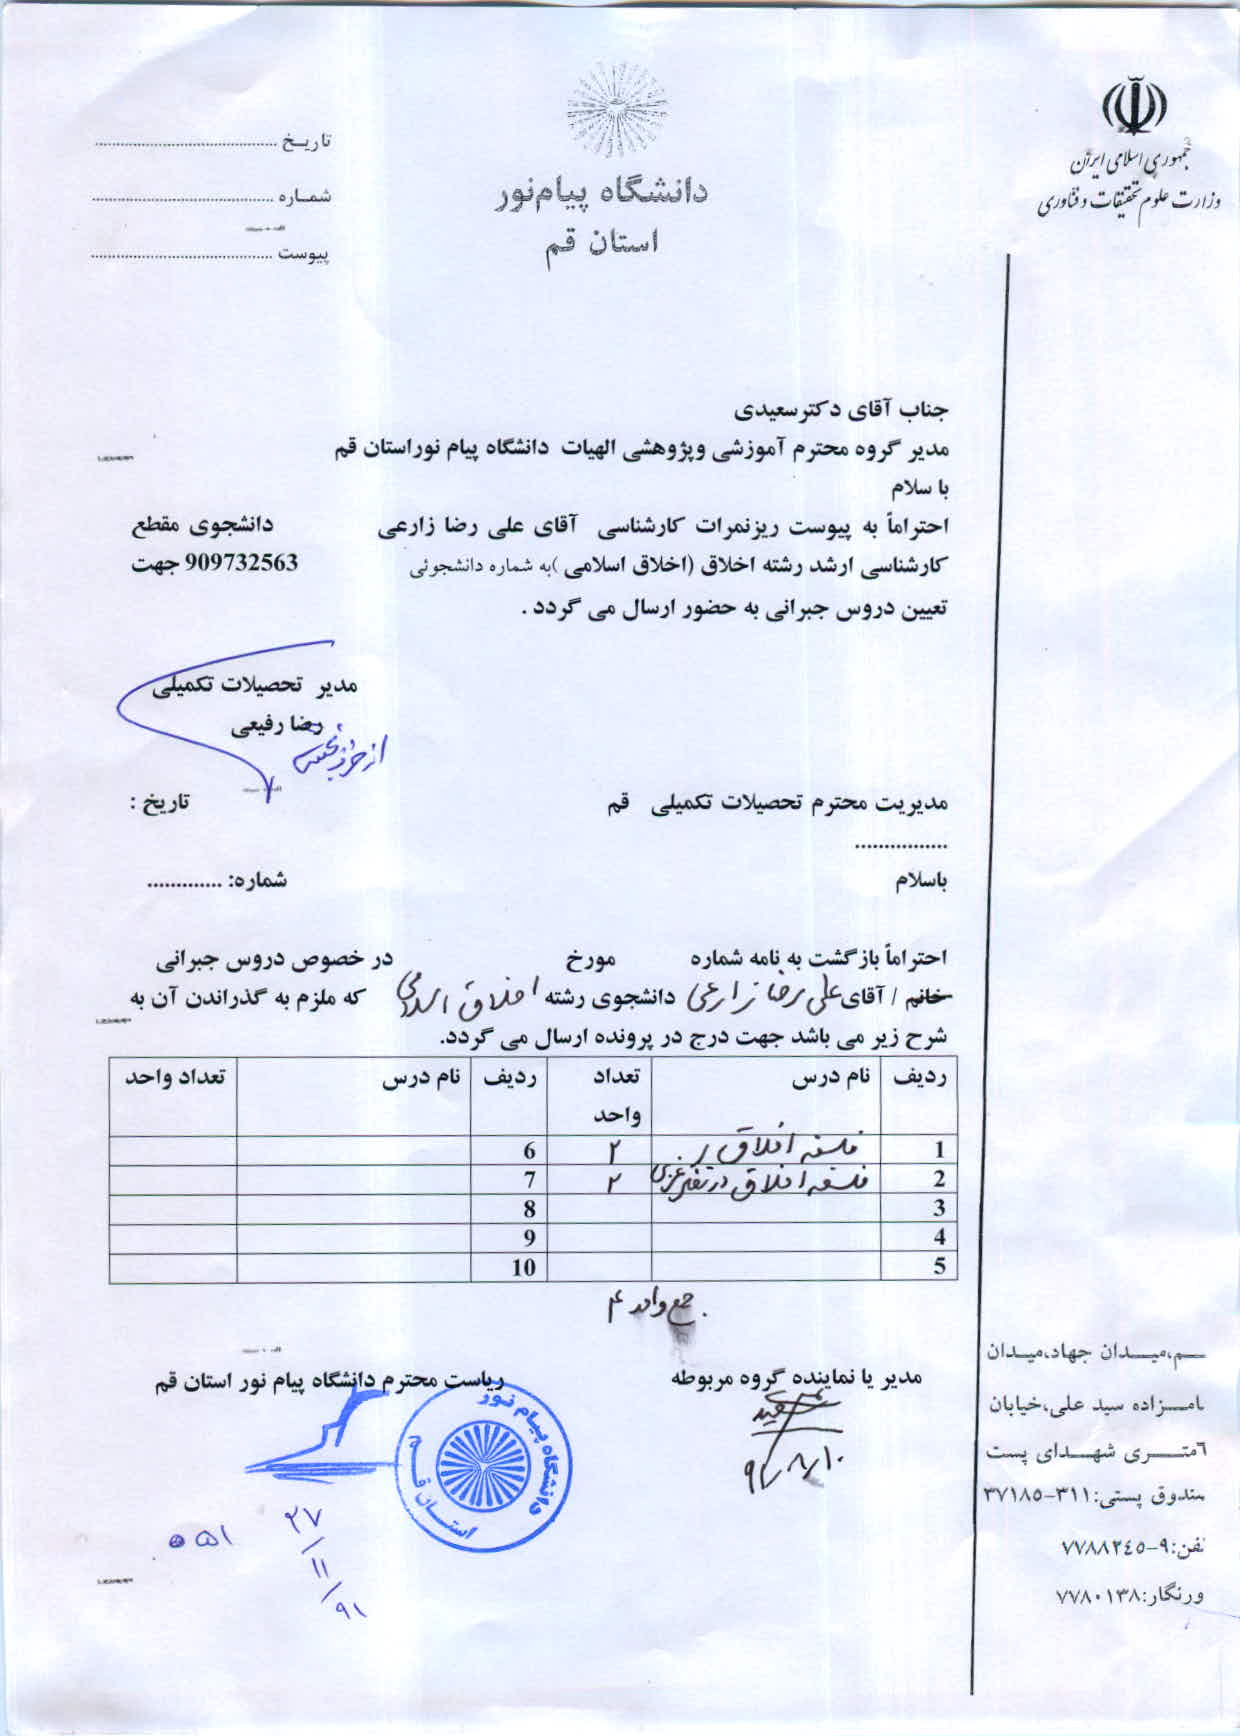 جمهوری اسلامی ایران
وزارت علوم تحقیقات و فناوری
دانشگاه پیام‌نور
استان قم
تاریخ ........................................
شماره ........................................
پیوست ........................................
جناب آقای دکترسعیدی
مدیر گروه محترم آموزشی وپژوهشی الهیات دانشگاه پیام نوراستان قم
با سلام
احتراماً به پیوست ریزنمرات کارشناسی آقای علی رضا زارعی دانشجوی مقطع
کارشناسی ارشد رشته اخلاق (اخلاق اسلامی )به شماره دانشجوئی 909732563 جهت
تعیین دروس جبرانی به حضور ارسال می گردد .
مدیر تحصیلات تکمیلی
رضا رفیعی
مدیریت محترم تحصیلات تکمیلی قم تاریخ :
................
باسلام شماره: .............
احتراماً بازگشت به نامه شماره مورخ در خصوص دروس جبرانی
خانم / آقای علی رضا زارعی دانشجوی رشته اخلاق اسلامی که ملزم به گذراندن آن به
شرح زیر می باشد جهت درج در پرونده ارسال می گردد.
ردیف نام درس تعداد واحد ردیف نام درس تعداد واحد
1 فلسفه اخلاق ۲ 6
2 فلسفه اخلاق در تفکر غربی ۲ 7
3 8
4 9
5 10
جمع واحد ۴
مدیر یا نماینده گروه مربوطه ریاست محترم دانشگاه پیام نور استان قم
دانشگاه پیام نور
استان قم
۲۷/۱۱/۹۱
۵۵۱
ـم،میدان جهاد،میدان
امامزاده سید علی،خیابان
٦متری شهدای پست
صندوق پستی:۳۱۱-۳۷۱۸۵
تلفن:۹-۷۷۸۸۲٤٥
دورنگار:۷۷۸۰۱۳۸